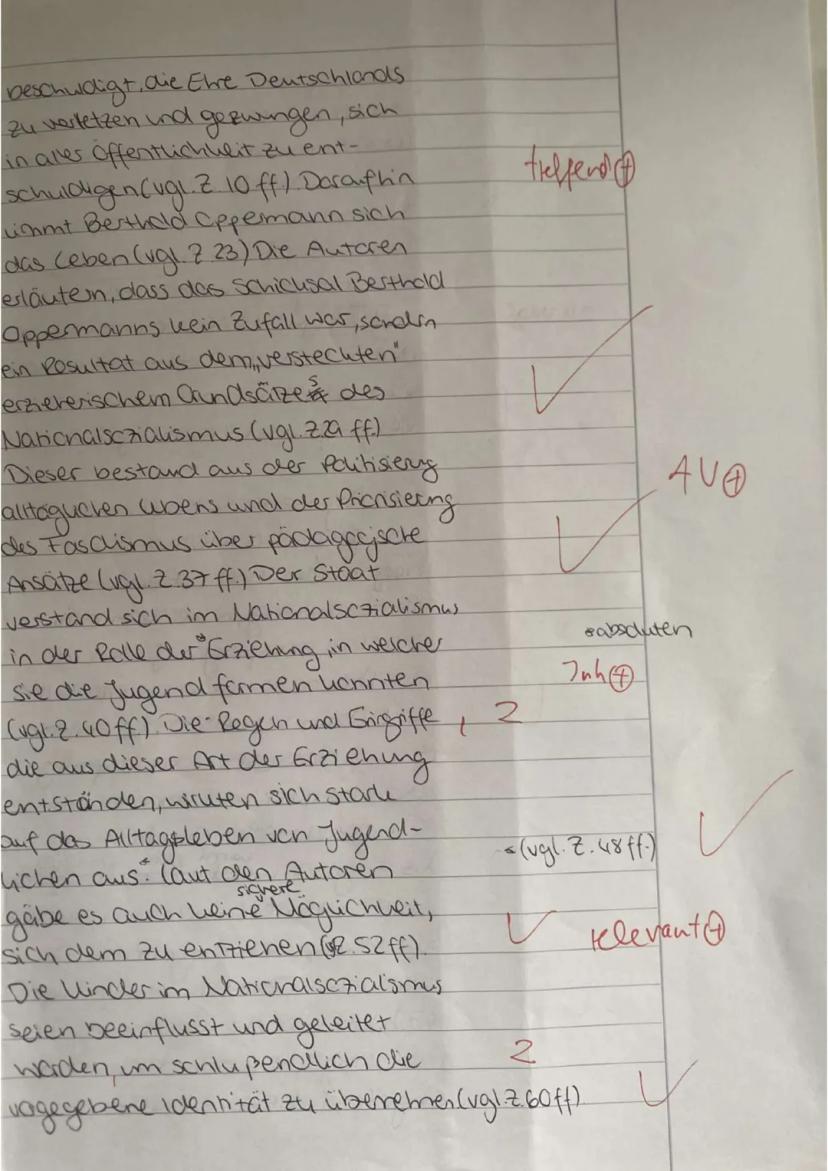 beschuldigt, die Ehre Deutschlands
zu verletzen und gezwungen, sich
in aller Öffentlichkeit zu ent-
schuldigen (vgl. Z 10 ff) Daraufhin treffend +
nimmt Berthold Oppermann sich
das Leben (vgl. Z 23) Die Autoren
erläutern, dass das Schicksal Berthold
Oppermanns kein Zufall war, sondern
ein Resultat aus dem „versteckten"
erzieherischem Grundsätzes des
Nationalsozialismus (vgl. Z. 29 ff.)
Dieser bestand aus der Politisierung AV +
alltäglichen Lebens und der Priorisierung
des Faschismus über pädagogische
Ansätze (vgl. Z. 37 ff.) Der Staat
verstand sich im Nationalsozialismus
in der Rolle der * Erziehung, in welcher *absoluten
sie die Jugend formen konnten Inh +
(vgl. Z. 40 ff). Die Regeln und Eingriffe , Z
die aus dieser Art der Erziehung
entständen, wirkten sich stark
auf das Alltagsleben von Jugend- *(vgl. Z. 48 ff.)
lichen aus.* Laut den Autoren
gäbe es auch keine sichere Möglichkeit,
sich dem zu entziehen (Z. 52 ff). relevant +
Die Kinder im Nationalsozialismus
seien beeinflusst und geleitet
worden, um schlußendlich die Z
vogegebene Identität zu übernehmen (vgl. Z. 60 ff)